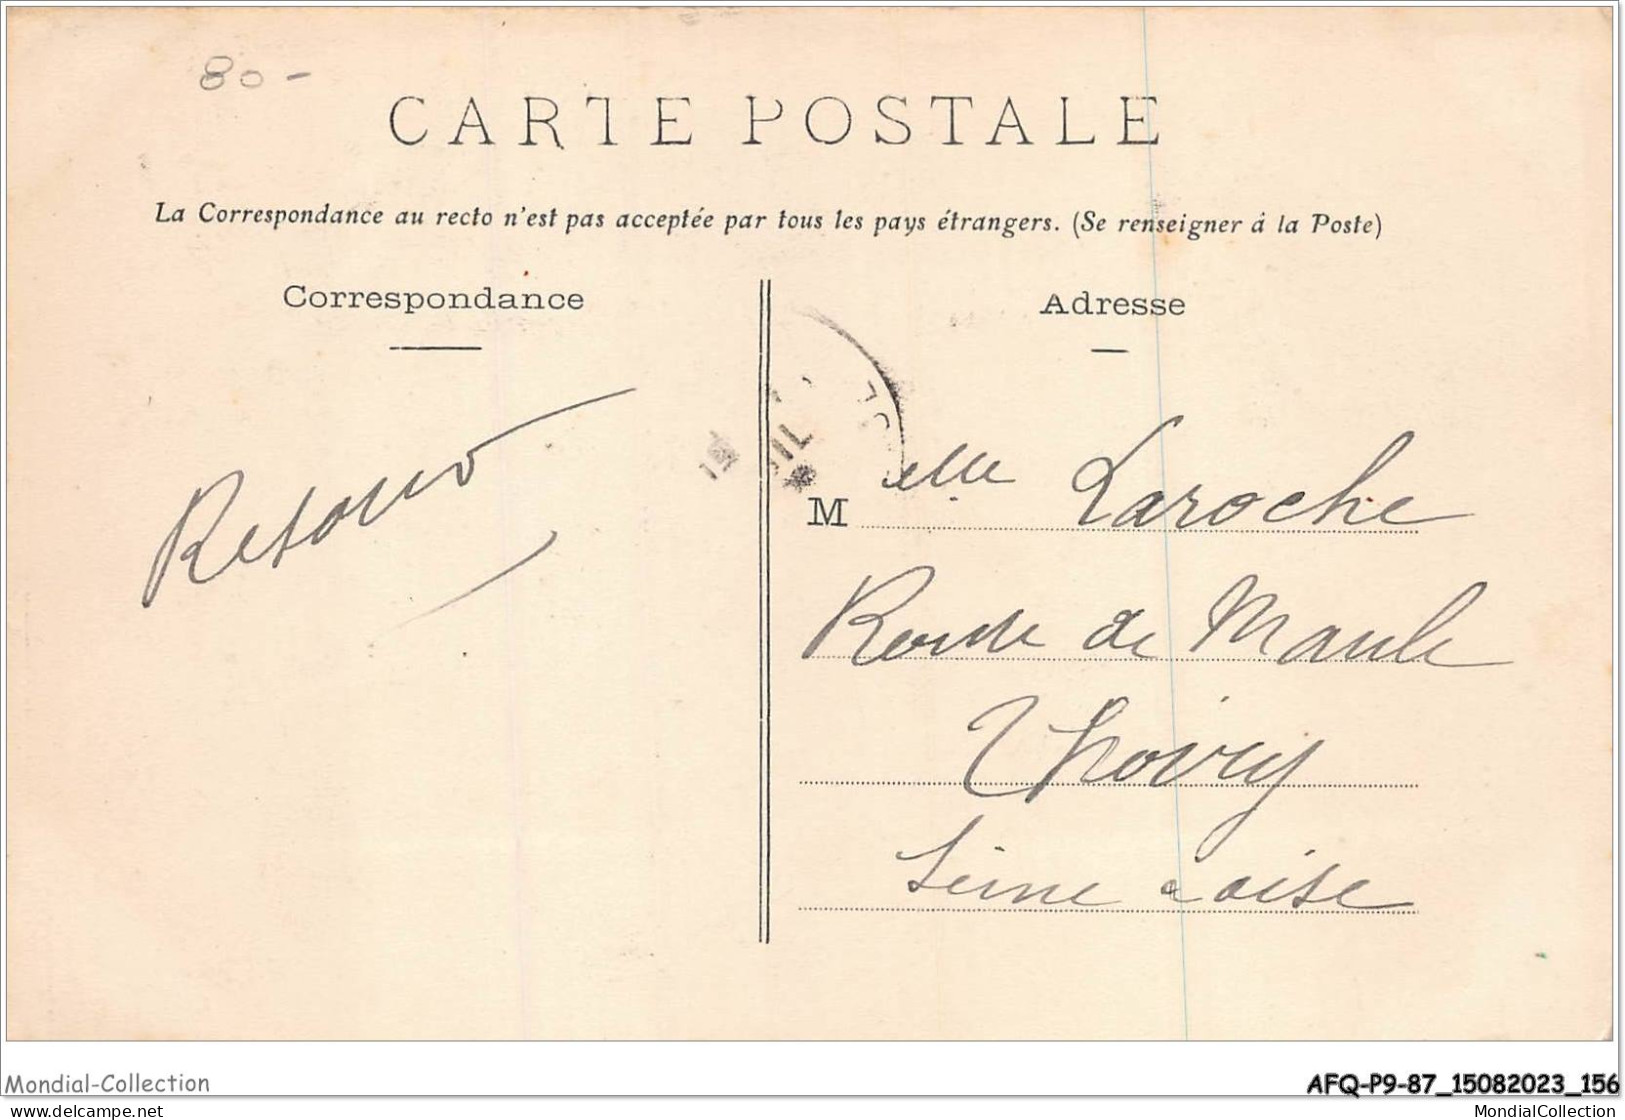 80-
CARTE POSTALE
La Correspondance au recto n'est pas acceptée par tous les pays étrangers. (Se renseigner à la Poste)
Correspondance
Adresse
Retour
M elle Laroche
Route de Maule
Thoiry
Seine & oise
Mondial-Collection
AFQ-P9-87_15082023_156
delcampe.net
MondialCollection